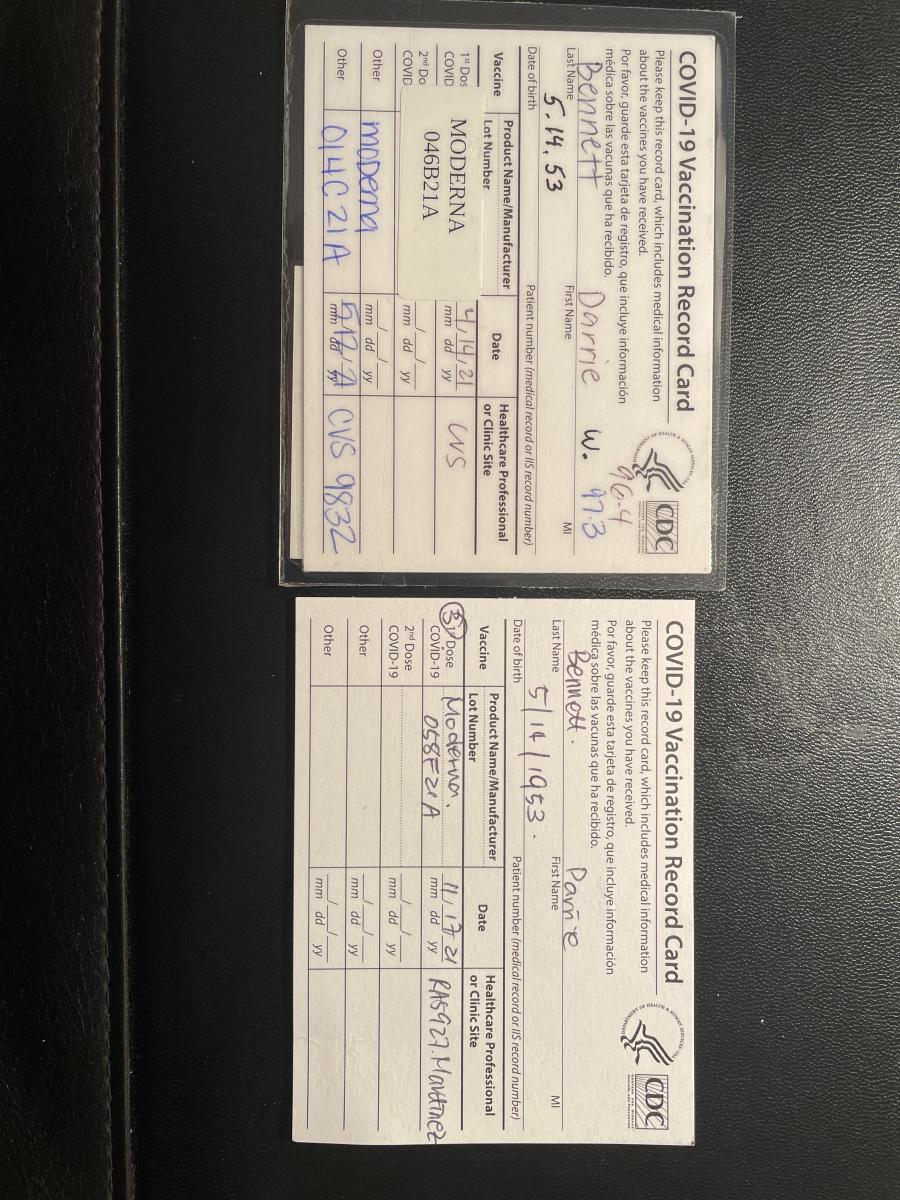 COVID-19 Vaccination Record Card
Please keep this record card, which includes medical information
about the vaccines you have received.
Por favor, guarde esta tarjeta de registro, que incluye información
médica sobre las vacunas que ha recibido.
DEPARTMENT OF HEALTH & HUMAN SERVICES USA
CDC
96.4
Bennett Darrie W. 97.3
Last Name First Name MI
5.14.53
Date of birth Patient number (medical record or IIS record number)
Vaccine Product Name/Manufacturer Date Healthcare Professional
Lot Number or Clinic Site
1st Dos MODERNA 4/14/21 CVS
COVID 046B21A mm dd yy
2nd Do / /
COVID mm dd yy
Other moderna / /
mm dd yy
Other 014C21A 5/12/21 CVS 9832
mm dd yy
COVID-19 Vaccination Record Card
Please keep this record card, which includes medical information
about the vaccines you have received.
Por favor, guarde esta tarjeta de registro, que incluye información
médica sobre las vacunas que ha recibido.
DEPARTMENT OF HEALTH & HUMAN SERVICES USA
CDC
Bennett. Darrie
Last Name First Name MI
5/14/1953.
Date of birth Patient number (medical record or IIS record number)
Vaccine Product Name/Manufacturer Date Healthcare Professional
Lot Number or Clinic Site
3 Dose Moderna. 11/17/21 RA5927.Martinez
COVID-19 058F21A mm dd yy
2nd Dose / /
COVID-19 mm dd yy
Other / /
mm dd yy
Other / /
mm dd yy